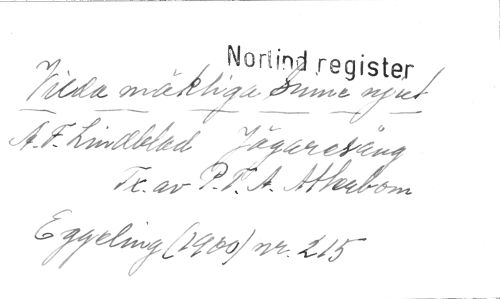 Norlind register
Vilda mäktiga
A.F. Lindblad Jägaresång
Tx. av P.D.A. Atterbom
Eggeling (1900) nr. 215